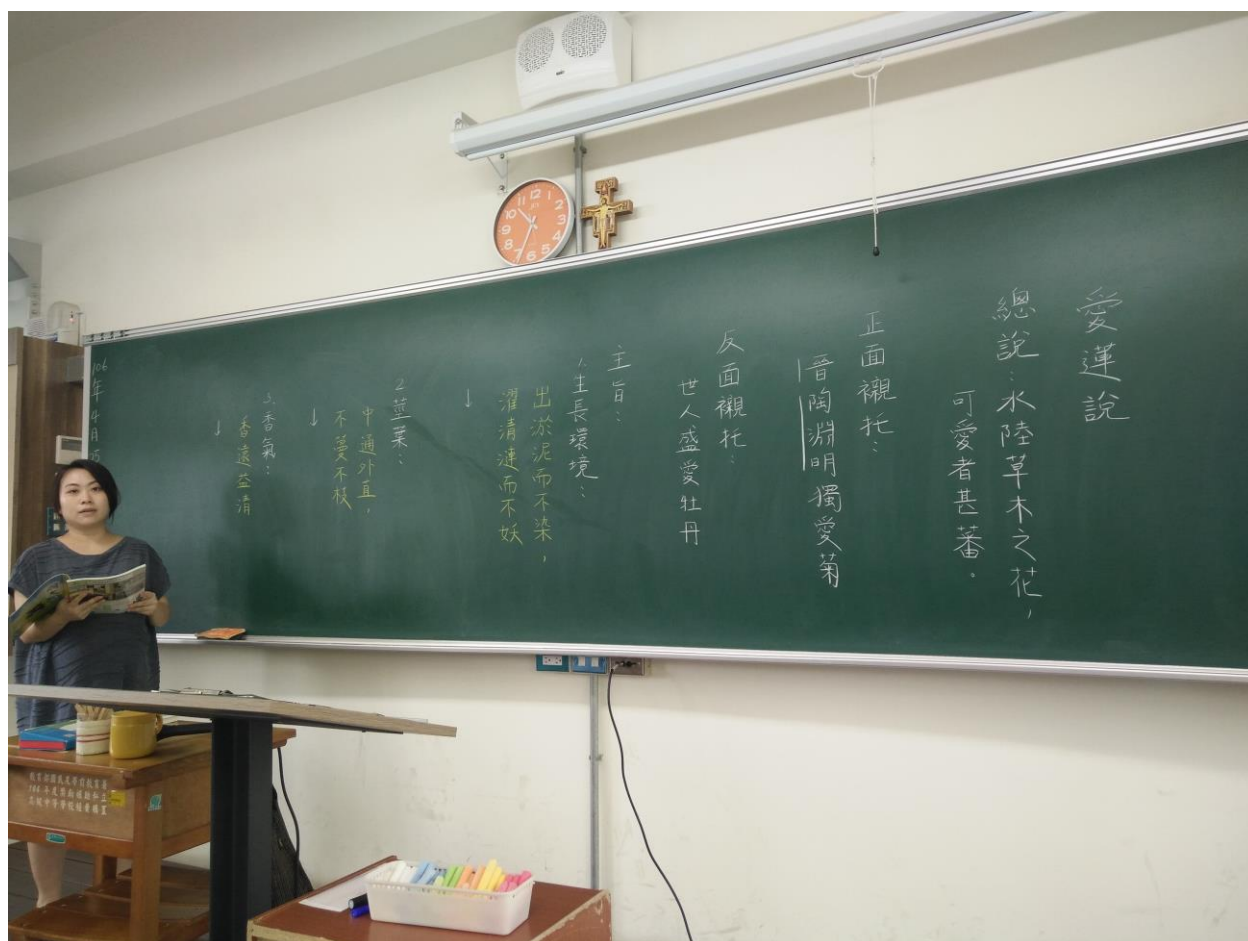 愛蓮說
總說：水陸草木之花，
可愛者甚蕃。
正面襯托：
晉陶淵明獨愛菊
反面襯托：
世人盛愛牡丹
主旨：
1.生長環境：
出淤泥而不染，
濯清漣而不妖
↓
2.莖葉：
中通外直，
不蔓不枝
↓
3.香氣：
香遠益清
↓
106年4月
12
1
2
3
4
5
6
7
8
9
10
11